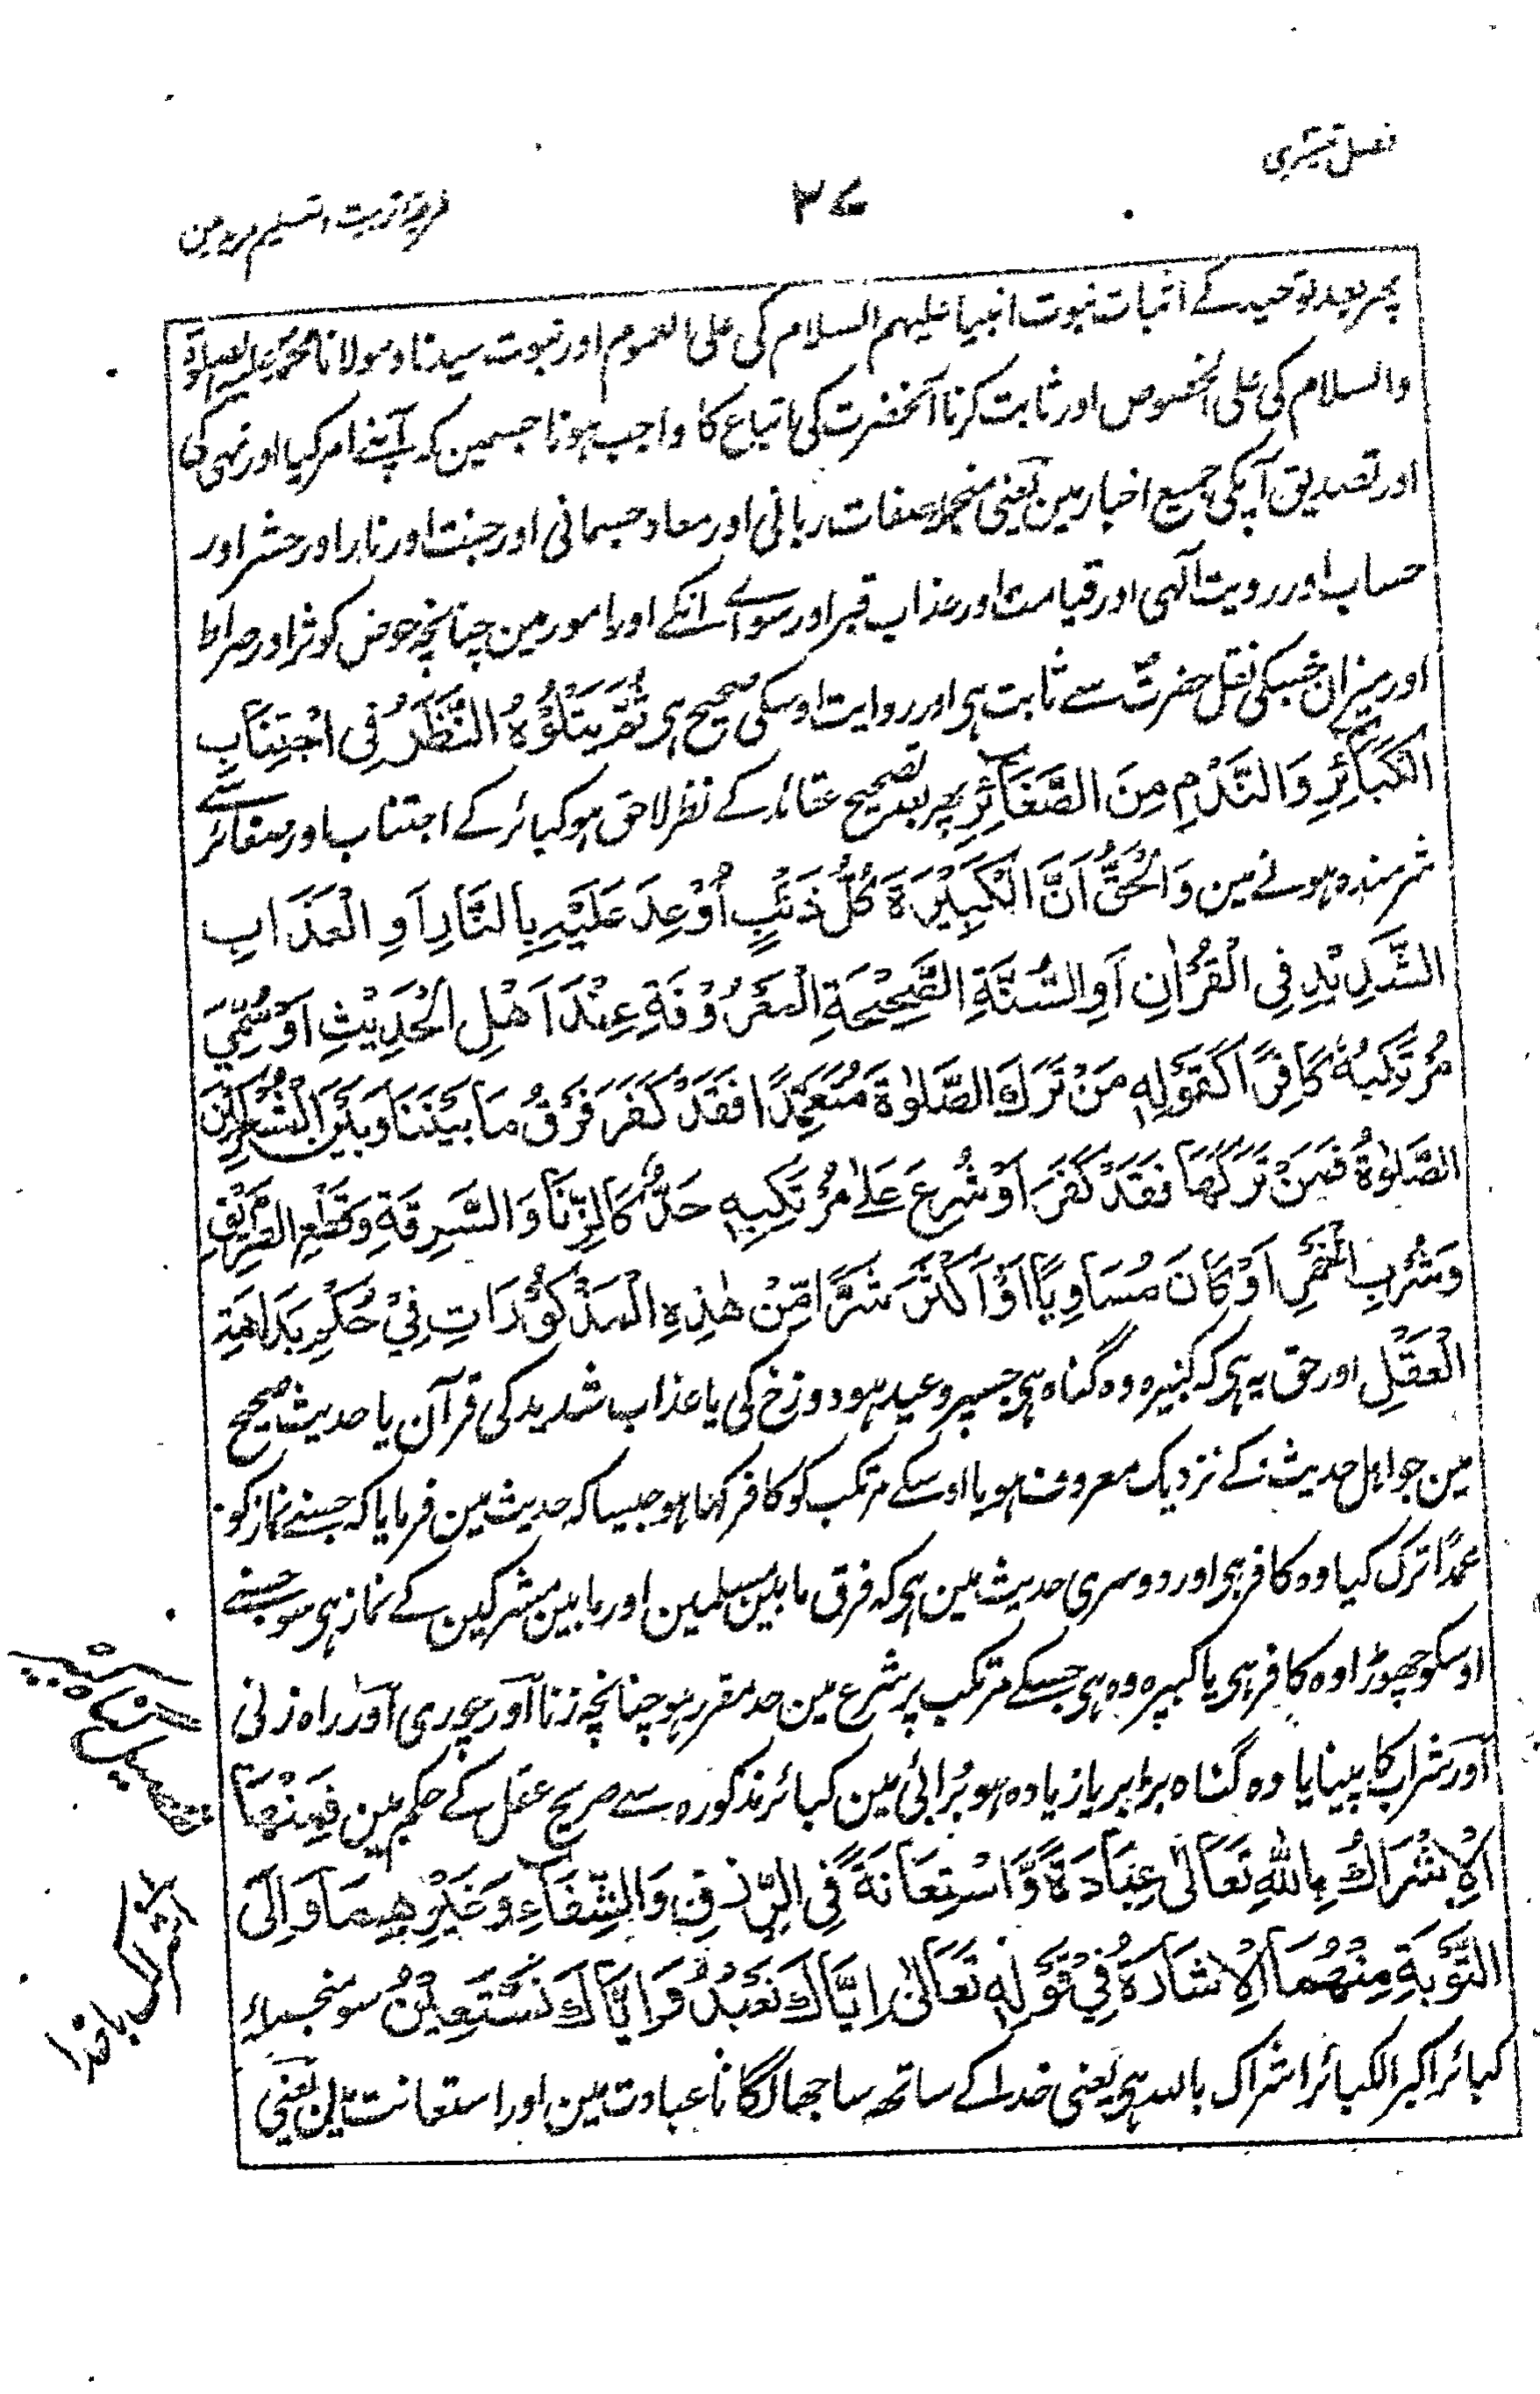 فصل تیسری
٢٧
طریقہ تربیت و تسلیم مریدین
پھر بعد توحید کے اثبات نبوت انبیا علیہم السلام کی علی العموم اور نبوت سیدنا و مولانا محمد علیہ الصلوٰۃ
والسلام کی علی الخصوص اور ثابت کرنا آنحضرت کی اتباع کا واجب ہونا جسمین کہ آپنے امر کیا اور نہی کی
اور تصدیق آپکی جمیع اخبار مین یعنی منجملہ صفات ربانی اور معاد جسمانی اور جنت اور نار اور حشر اور
حساب اور رویت آلہی اور قیامت اور عذاب قبر اور سواے انکے اور امور مین چنانچہ حوض کوثر اور صراط
اور میزان جسکی نقل حضرتؐ سے ثابت ہی اور روایت اوسکی صحیح ہی ثُمَّ يَتْلُوْهُ النَّظَرُ فِى اجْتِنَابِ
الْكَبَائِرِ وَالنَّدَمِ مِنَ الصَّغَائِرِ پھر بعد تصحیح عقائد کے نظر لاحق ہو کبائر کے اجتناب اور صغائر سے
شرمندہ ہونے مین وَالْحَقُّ اَنَّ الْكَبِيْرَةَ كُلُّ ذَنْبٍ اُوْعِدَ عَلَيْهِ بِالنَّارِ اَوِ الْعَذَابِ
الشَّدِيْدِ فِى الْقُرْاٰنِ اَوِ السُّنَّةِ الصَّحِيْحَةِ الْمَعْرُوْفَةِ عِنْدَ اَهْلِ الْحَدِيْثِ اَوْ سُمِّيَ
مُرْتَكِبُهٗ كَافِرًا كَقَوْلِهٖ مَنْ تَرَكَ الصَّلٰوةَ مُتَعَمِّدًا فَقَدْ كَفَرَ فَرْقُ مَا بَيْنَنَا وَبَيْنَ الْمُشْرِكِيْنَ
الصَّلٰوةُ فَمَنْ تَرَكَهَا فَقَدْ كَفَرَ اَوْ شُرِعَ عَلٰى مُرْتَكِبِهٖ حَدٌّ كَالزِّنَا وَالسَّرِقَةِ وَقَطْعِ الطَّرِيْقِ
وَشُرْبِ الْخَمْرِ اَوْ كَانَ مُسَاوِيًا اَوْ اَكْثَرَ شَرًّا مِّنْ هٰذِهِ الْمَذْكُوْرَاتِ فِيْ حُكْمِ بَدَاهَةِ
الْعَقْلِ اور حق یہ ہی کہ کبیرہ وہ گناہ ہی جسپر وعید ہو دوزخ کی یا عذاب شدید کی قرآن یا حدیث صحیح
مین جو اہل حدیث کے نزدیک معروف ہو یا اوسکے مرتکب کو کافر کہا ہو جیسا کہ حدیث مین فرمایا کہ جسنے نماز کو
عمدًا ترک کیا وہ کافر ہی اور دوسری حدیث مین ہی کہ فرق مابین مسلمین اور مابین مشرکین کے نماز ہی سو جسنے
اوسکو چھوڑا وہ کافر ہی یا کبیرہ وہ ہی جسکے مرتکب پر شرع مین حد مقرر ہو چنانچہ زنا اور چوری اور راہ زنی
اور شراب کا پینا یا وہ گناہ برابر یا زیادہ ہو بُرائی مین کبائر مذکورہ سے صریح عقل کے حکم مین فَمِنْهَا
الْاِشْرَاكُ بِاللّٰهِ تَعَالٰى عِبَادَةً وَّاسْتِعَانَةً فِى الرِّزْقِ وَالشِّفَاءِ وَغَيْرِهِمَا وَاِلَى
التَّوْبَةِ مِنْهُمَا الْاِشَارَةُ فِيْ قَوْلِهٖ تَعَالٰى اِيَّاكَ نَعْبُدُ وَاِيَّاكَ نَسْتَعِيْنُ سو منجملہ
کبائر اکبر الکبائر اشراک باللہ ہی یعنی خدا کے ساتھ ساجھا لگانا عبادت مین اور استعانت مین یعنی
اشراک باخدا